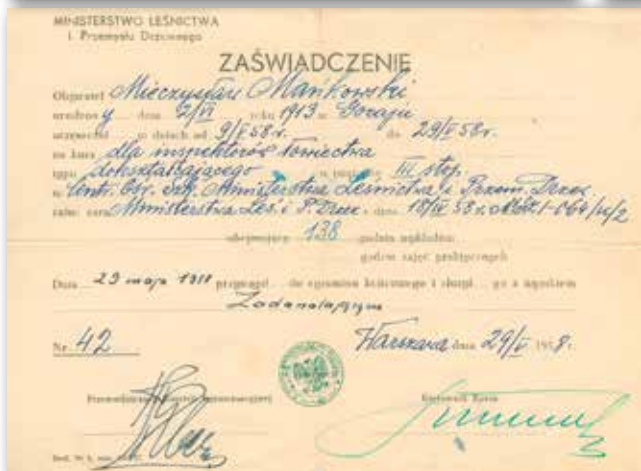 MINISTERSTWO LEŚNICTWA
i Przemysłu Drzewnego
ZAŚWIADCZENIE
Obywatel Mieczysław Mańkowski
urodzony dnia 2/VI roku 1913 w Goraju
uczęszczał w dniach od 9/V 58 r. do 29/V 58 r.
na kurs dla inspektorów łowiectwa
typu dokształcającego III stop.
w Centr. Ośr. Szk. Ministerstwa Leśnictwa i Przem. Drzew.
Ministerstwa Leś. i P. Drzew. dnia 18/IV 58 r.
obejmujący 138 godzin wykładów
godzin zajęć praktycznych
Dnia 29 maja do egzaminu końcowego i złożył go z wynikiem
Zadawalającym
Nr 42 Warszawa dnia 29/V 1958 r.
Przewodniczący Komisji Egzaminacyjnej Kierownik Kursu